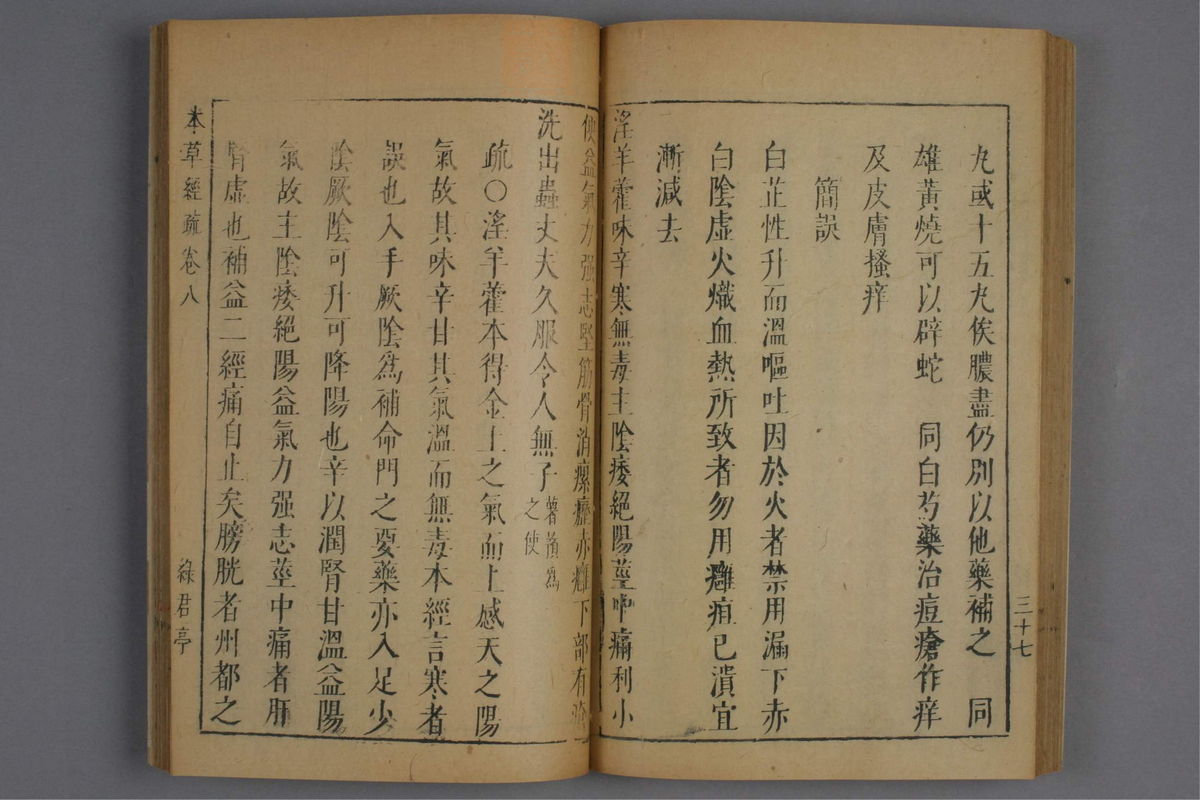 丸或十五丸俟膿盡仍別以他藥補之　同
雄黃燒可以辟蛇　同白芍藥治痘瘡作痒
及皮膚搔痒
簡誤
白芷性升而溫嘔吐因於火者禁用漏下赤
白陰虛火熾血熱所致者勿用癰疽已潰宜
漸減去
淫羊藿味辛寒無毒主陰痿絕陽莖中痛利小
三十七
便益氣力強志堅筋骨消瘰癧赤癰下部有瘡
洗出蟲丈夫久服令人無子薯蕷爲之使
疏○淫羊藿本得金土之氣而上感天之陽
氣故其味辛甘其氣溫而無毒本經言寒者
誤也入手厥陰爲補命門之要藥亦入足少
陰厥陰可升可降陽也辛以潤腎甘溫益陽
氣故主陰痿絕陽益氣力强志莖中痛者肝
腎虛也補益二經痛自止矣膀胱者州都之
本草經疏卷八
綠君亭